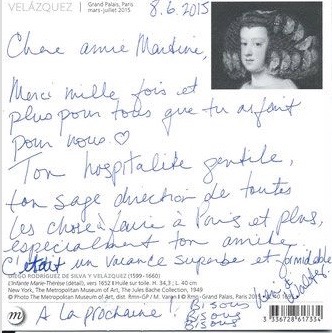 VELÁZQUEZ | Grand Palais, Paris
mars-juillet 2015
8.6.2015
Chere amie Martine,
Merci mille fois et
plus pour tous que tu as fait
pour nous ♡
Ton hospitalité gentile,
ton sage direction de toutes
les chose à faire à Paris et plus,
especialment ton amitié.
C'était un vacance superbe et formidable
DIEGO RODRÍGUEZ DE SILVA Y VELÁZQUEZ (1599-1660)
L'Infante Marie-Thérèse (détail), vers 1652 | Huile sur toile. H. 34,3 ; L. 40 cm
New York, The Metropolitan Museum of Art, The Jules Bache Collection, 1949
© Photo The Metropolitan Museum of Art, dist. Rmn-GP / M. Varon | © Rmn - Grand Palais
A la prochaine !
Bisous
Bisous
Bisous
m
3 336728 617334